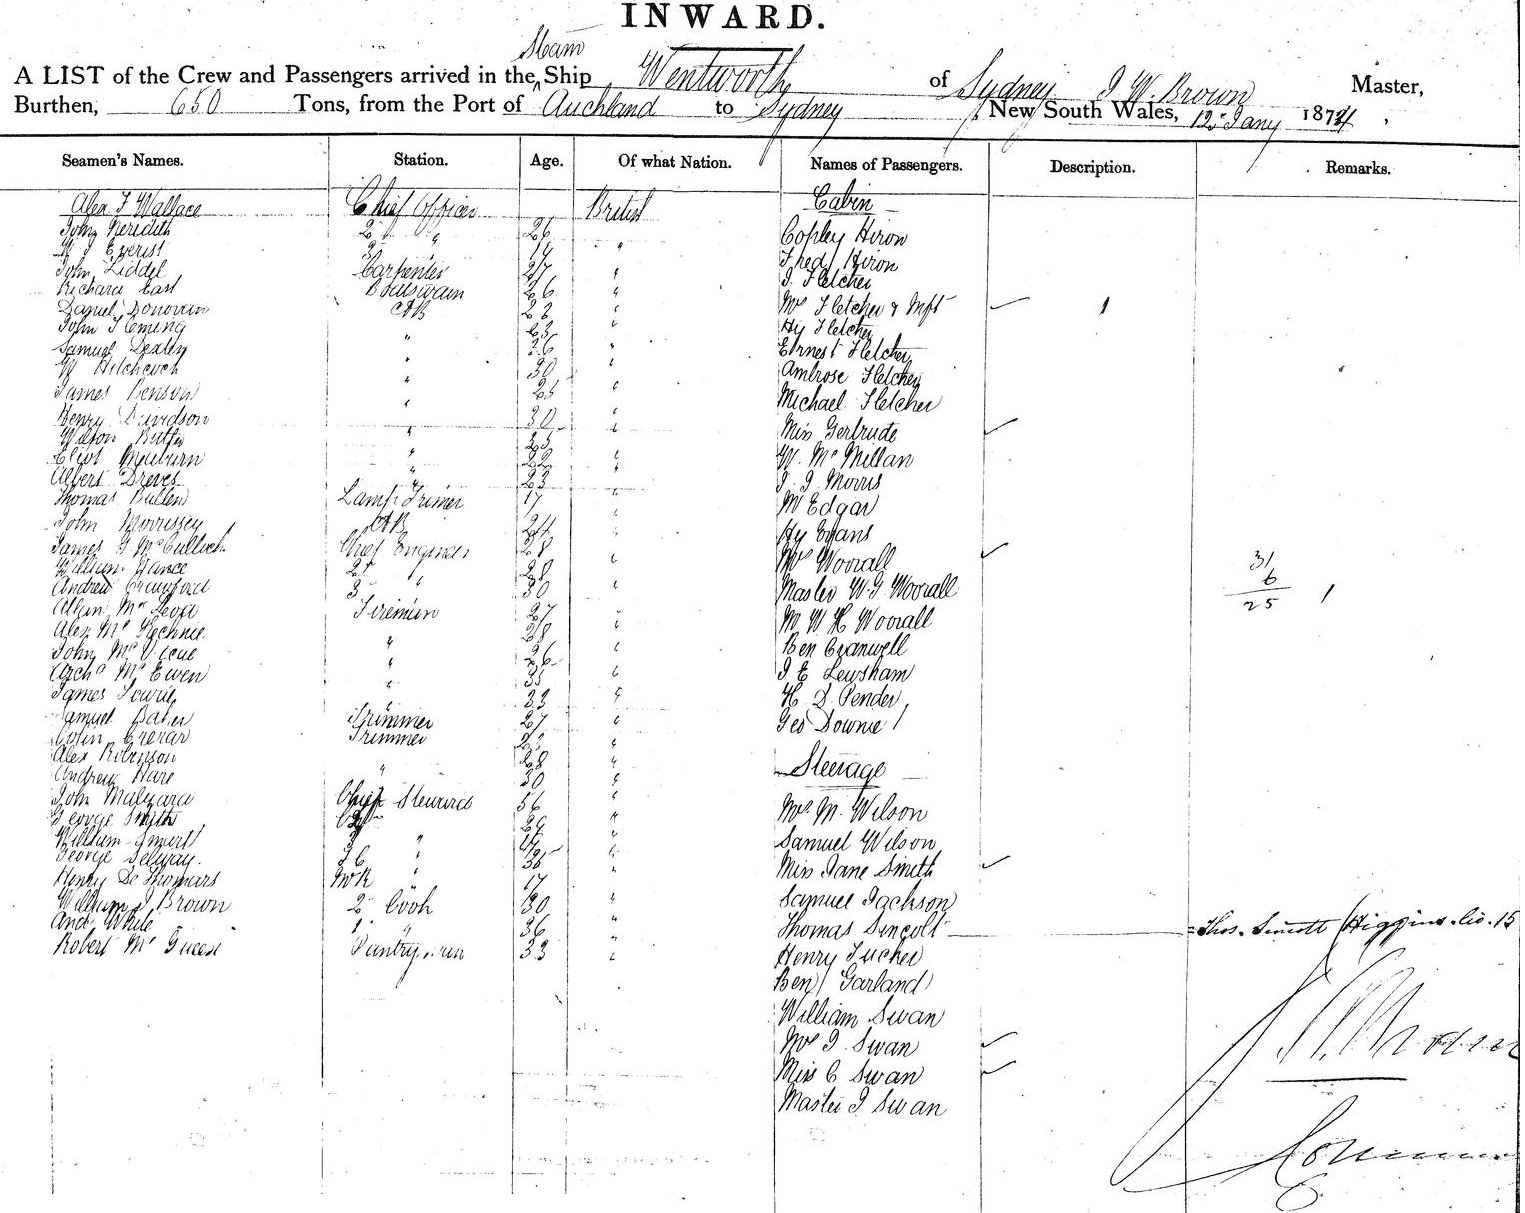 INWARD.
Steam
A LIST of the Crew and Passengers arrived in the Ship Wentworth of Sydney J W. Brown Master,
Burthen, 650 Tons, from the Port of Auckland to Sydney, New South Wales, 12 Jany 1874,
Seamen's Names. Station. Age. Of what Nation. Names of Passengers. Description. Remarks.
Alex F Wallace Chief Officer British Cabin
John Meredith 2 " 26 Copley Hiron
Everist 3 " Fred Hiron
John Liddel Carpenter 27 " J. Fletcher
Richard East Boatswain 26 " Mrs Fletcher & Inft 1
Daniel Donovan AB 23 " Hy Fletcher
John Fleming " 23 " Ernest Fletcher
Samuel Dexter " 26 " Ambrose Fletcher
W Hitchcock " 30 " Michael Fletcher
James Benson " 25 " Miss Gertrude
Henry Davidson " 30 " W. McMillan
Wilson " 25 " J. J Morris
" 22 " Mr Edgar
Albert Dreves " 23 " Hy Evans
Thomas Bullen Lamp Trimer 17 " Mrs Woorall
John Morrissey AB 24 " Master W G Woorall
James G McCulloch Chief Engineer 28 " M W H Woorall
William Nance 2 " 28 " Ben Cranwell
Andrew Crawford 3 " 30 " J E Lewsham
Allan McLeod Fireman 27 " H. D. Pender
Alex McKechnie " 28 " Geo Downie
John " 26 " Steerage
Archd McEwen " 35 " Mrs M. Wilson
James Lowrie " 33 " Samuel Wilson
Samuel Baker Trimmer 27 " Miss Jane Smith
Colin Crerar Trimmer " Samuel Jackson
Alex Robinson " 28 " Thomas Sincott
Andrew Hare " 30 " Henry Tucker
John Chief Steward 56 " Ben Garland
George Smith 2 " 29 " William Swan
William Smart 3 " Mrs J. Swan
George Selway. F C " 36 " Miss C Swan
Henry De Thomars " 17 " Master J Swan
William J Brown 2 Cook 30 "
And White 1 " 36 "
Robert Pantryman 33 "
31
6
25 1
Thos. Sincott (Higgins. liv. 15
J W Brown
Comm